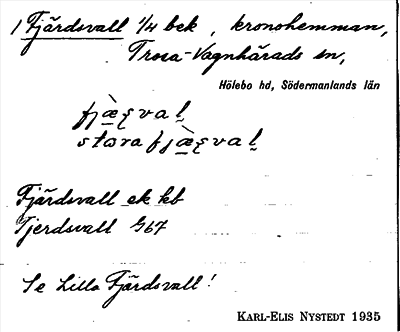 1 Fjärdsvall 1/4 bek, kronohemman,
Trosa-Vagnhärads sn,
Hölebo hd, Södermanlands län
fjæ̀ʂval̠
stora fjæ̀ʂval̠
Fjärdsvall ek kb
Fjerdsvall G67
Se Lilla Fjärdsvall!
KARL-ELIS NYSTEDT 1935